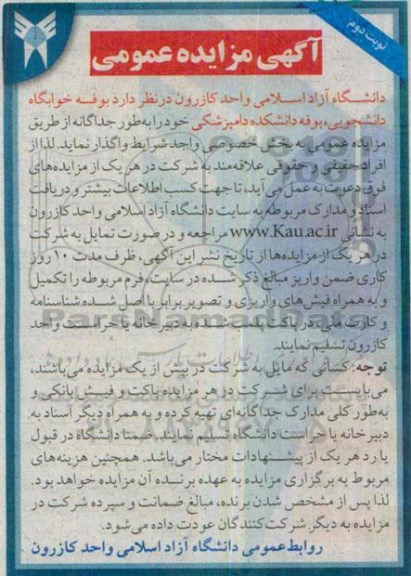 نوبت دوم
آگهی مزایده عمومی
دانشگاه آزاد اسلامی واحد کازرون در نظر دارد بوفه خوابگاه
دانشجویی، بوفه دانشکده دامپزشکی خود را به‌طور جداگانه از طریق
مزایده عمومی به بخش خصوصی واجد شرایط واگذار نماید. لذا از
افراد حقیقی و حقوقی علاقه‌مند به شرکت در هر یک از مزایده‌های
فوق دعوت به عمل می آید، تا جهت کسب اطلاعات بیشتر و دریافت
اسناد و مدارک مربوطه به سایت دانشگاه آزاد اسلامی واحد کازرون
به نشانی www.Kau.ac.ir مراجعه و در صورت تمایل به شرکت
در هر یک از مزایده‌ها از تاریخ نشر این آگهی، ظرف مدت ۱۰ روز
کاری ضمن واریز مبالغ ذکر شده در سایت، فرم مربوطه را تکمیل
و به همراه فیش‌های واریزی و تصویر برابر با اصل شده شناسنامه
و کارت ملی، در پاکت پست شده به دبیرخانه یا حراست واحد
کازرون تسلیم نمایند.
توجه: کسانی که مایل به شرکت در بیش از یک مزایده می‌باشند،
می‌بایست برای شرکت در هر مزایده پاکت و فیش بانکی و
به‌طور کلی مدارک جداگانه‌ای تهیه کرده و به همراه دیگر اسناد به
دبیرخانه یا حراست دانشگاه تسلیم نمایند. ضمنا دانشگاه در قبول
یا رد هر یک از پیشنهادات مختار می‌باشد. همچنین هزینه‌های
مربوط به برگزاری مزایده به عهده برنده آن مزایده خواهد بود.
لذا پس از مشخص شدن برنده، مبالغ ضمانت و سپرده شرکت در
مزایده به دیگر شرکت‌کنندگان عودت داده می‌شود.
روابط عمومی دانشگاه آزاد اسلامی واحد کازرون
ParsNamadData